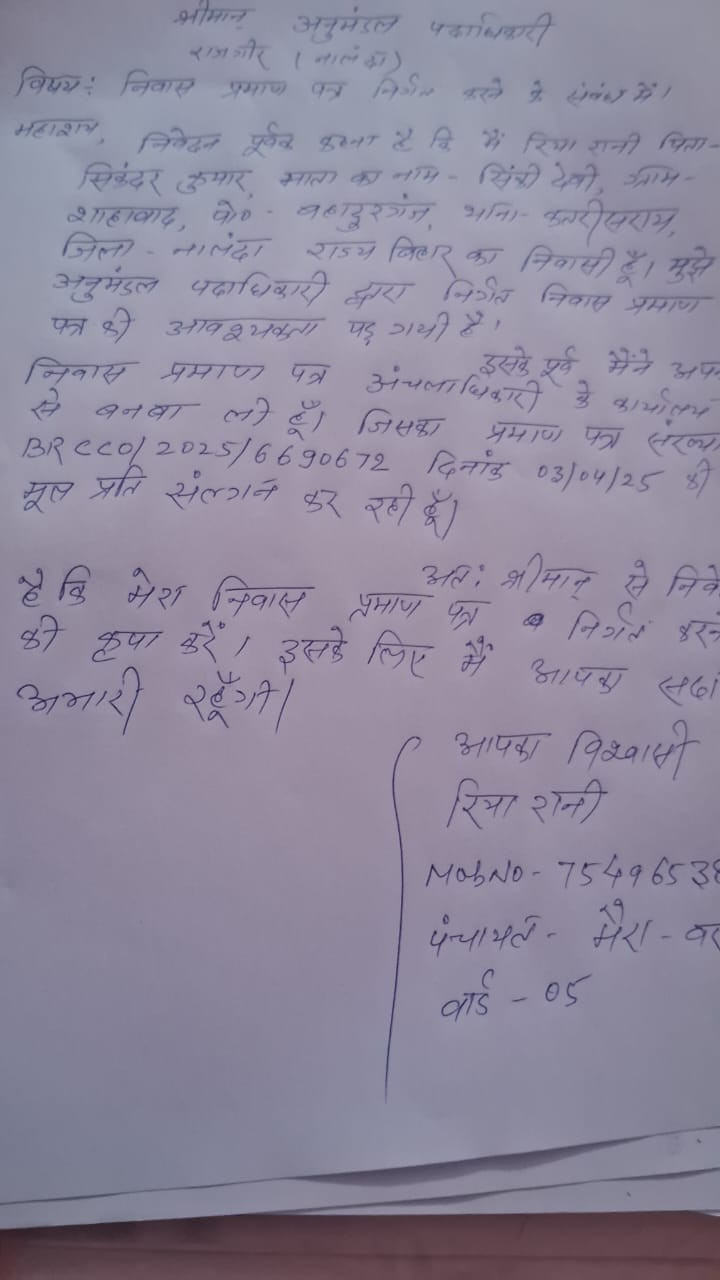 श्रीमान् अनुमंडल पदाधिकारी
राजगीर (नालंदा)
विषय: निवास प्रमाण पत्र निर्गत करने के संबंध में।
महाशय,
निवेदन पूर्वक कहना है कि मैं रिया रानी पिता-
सिकंदर कुमार, माता का नाम - रिंकी देवी, ग्राम-
शाहावाद, पो०- बहादुरगंज, थाना- कतरीसराय,
जिला - नालंदा राज्य बिहार का निवासी हूँ। मुझे
अनुमंडल पदाधिकारी द्वारा निर्गत निवास प्रमाण
पत्र की आवश्यकता पड़ गयी है।
इसके पूर्व मैंने
निवास प्रमाण पत्र अंचलाधिकारी के कार्यालय
से बनबा ली हूँ। जिसका प्रमाण पत्र संख्या
BRCCO/2025/6690672 दिनांक 03/04/25 की
मूल प्रति संलग्न कर रही हूँ।
अत: श्रीमान् से
है कि मेरा निवास प्रमाण पत्र निर्गत करने
की कृपा करें। इसके लिए मैं आपका सदा
अभारी रहूँगी।
आपका विश्वासी
रिया रानी
Mob No - 75496538
पंचायत - मैरा -
वार्ड - 05